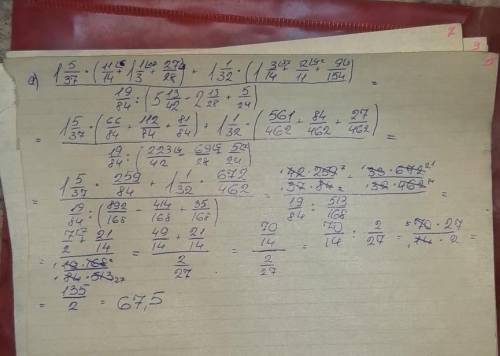 а) (1 5/37 · (11/14 + 1 1/3 + 27/28) + 1 1/32 · (1 3/14 + 2/11 + 9/154)) / (19/84 : (5 13/42 - 2 13/28 + 5/24)) =
= (1 5/37 · (66/84 + 112/84 + 81/84) + 1 1/32 · (561/462 + 84/462 + 27/462)) / (19/84 : (223/42 - 69/28 + 5/24)) =
= (1 5/37 · 259/84 + 1 1/32 · 672/462) / (19/84 : (892/168 - 414/168 + 35/168)) = (42·259/37·84 + 33·672/32·462) / (19/84 : 513/168) =
= (7/2 + 21/14) / (19·168/84·513) = (49/14 + 21/14) / (2/27) = (70/14) / (2/27) = 70/14 : 2/27 = 70·27/14·2 =
= 135/2 = 67,5